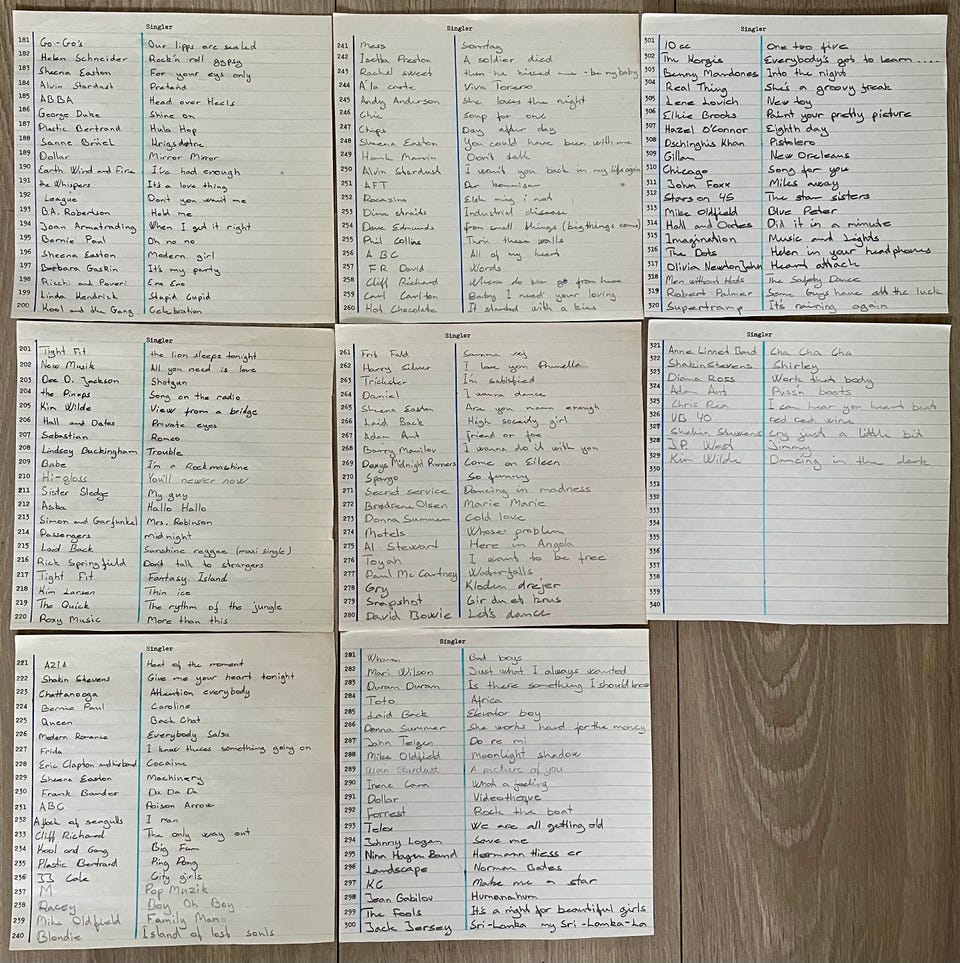 Singler
181 Go-Go's Our lipps are sealed
182 Helen Schneider Rock'n roll gypsy
183 Sheena Easton For your eyes only
184 Alvin Stardust Pretend
185 ABBA Head over Heels
186 George Duke Shine on
187 Plastic Bertrand Hula Hop
188 Sanne Brüel
189 Dollar Mirror Mirror
190 Earth Wind and Fire I've had enough
191 the Whispers It's a love thing
192 League Don't you want me
193 B.A. Robertson Hold me
194 Joan Armatrading When I get it right
195 Bernie Paul Oh no no
196 Sheena Easton Modern girl
197 Barbara Gaskin It's my party
198 Ricchi and Poveri
199 Linda Hendrick Stupid Cupid
200 Kool and the Gang Celebration
Singler
201 Tight Fit the lion sleeps tonight
202 New Musik All you need is love
203 Dee D. Jackson Shotgun
204 the Pinups Song on the radio
205 Kim Wilde View from a bridge
206 Hall and Oates Private eyes
207 Sebastian Romeo
208 Lindsey Buckingham Trouble
209 Babe I'm a Rockmachine
210 Hi-gloss You'll newer now
211 Sister Sledge My guy
212 Aska Hallo Hallo
213 Simon and Garfunkel Mrs. Robinson
214 Passengers midnight
215 Laid Back Sunshine reggae (maxi single)
216 Rick Springfield Don't talk to strangers
217 Tight Fit Fantasy Island
218 Kim Larsen Thin ice
219 The Quick The rythm of the jungle
220 Roxy Music More than this
Singler
221 AZIA Heat of the moment
222 Shakin Stevens Give me your heart tonight
223 Chattanooga Attention everybody
224 Bernie Paul Caroline
225 Queen Back Chat
226 Modern Romance Everybody Salsa
227 Frida I know theres something going on
228 Eric Clapton and his band Cocaine
229 Sheena Easton Machinery
230 Frank Bander Da Da Da
231 ABC Poison Arrow
232 A flock of seagulls I ran
233 Cliff Richard The only way out
234 Kool and Gang Big Fun
235 Plastic Bertrand Ping Pong
236 JJ Cale City girls
237 M Pop Muzik
238 Racey Boy Oh Boy
239 Mike Oldfield Family Man
240 Blondie Island of lost souls
Singler
241 Mess Sonntag
242 Isetta Preston A soldier died
243 Rachel sweet then he kissed me - be my baby
244 A'la carte Viva Torero
245 Andy Anderson She loves the night
246 Chic Soup for one
247 Chips Day after day
248 Sheena Easton You could have been with me
249 Hank Marvin Don't talk
250 Alvin Stardust I want you back in my life again
251 AFT Der kommisar
252 Rocazino Elsk mig i nat
253 Dire straits Industrial disease
254 Dave Edmunds From small things (big things come)
255 Phil Collins Thru these walls
256 ABC All of my heart
257 F R David Words
258 Cliff Richard Where do we go from here
259 Carl Carlton Baby I need your loving
260 Hot Chocolate It started with a kiss
261 Frit Fald Samme vej
262 Harry Silver I love you Prunella
263 Trickster I'm satisfied
264 Daniel I wanna dance
265 Sheena Easton Are you mann enough
266 Laid Back High society girl
267 Adam Ant friend or foe
268 Barry Manilow I wanna do it with you
269 Dexys Midnight Runners Come on Eileen
270 Spargo So funny
271 Secret service Dancing in madness
272 Brødrene Olsen Marie Marie
273 Donna Summer Cold love
274 Motels Whose problem
275 Al Stewart Here in Angola
276 Toyah I want to be free
277 Paul Mc Cartney Waterfalls
278 Gry Kloden drejer
279 Snapshot Gir' du et knus
280 David Bowie Let's dance
Singler
281 Wham Bad boys
282 Mari Wilson Just what I always wanted
283 Duran Duran Is there something I should know
284 Toto Africa
285 Laid Back Elevator boy
286 Donna Summer She works hard for the money
287 Jahn Teigen Do re mi
288 Mike Oldfield Moonlight shadow
289 Alvin Stardust A picture of you
290 Irene Cara What a feeling
291 Dollar Videotheque
292 Forrest Rock the boat
293 Telex We are all getting old
294 Johnny Logan Save me
295 Nina Hagen Band Hermann Hiess er
296 Landscape Norman Bates
297 KC Make me a star
298 Jean Gabilou Humanahum
299 The Fools It's a night for beautiful girls
300 Jack Jersey Sri-Lanka my Sri-Lanka-La
Singler
301 10 cc One two five
302 The Korgis Everybody's got to learn.....
303 Benny Mardones Into the night
304 Real Thing She's a groovy freak
305 Lene Lovich New toy
306 Elkie Brooks Paint your pretty picture
307 Hazel O'Connor Eighth day
308 Dschinghis Khan Pistolero
309 Gillan New Orcleans
310 Chicago Song for you
311 John Foxx Miles away
312 Stars on 45 The star sisters
313 Mike Oldfield Blue Peter
314 Hall and Oates Did it in a minute
315 Imagination Music and Lights
316 The Dots Helen in your headphones
317 Olivia Newton John Heart attack
318 Men without Hats The Safety Dance
319 Robert Palmer Some Guys have all the luck
320 Supertramp It's raining again
Singler
321 Anne Linnet Band Cha Cha Cha
322 Shakin Stevens Shirley
323 Diana Ross Work that body
324 Adam Ant Puss'n boots
325 Chris Rea I can hear you heart beat
326 UB 40 red red wine
327 Shakin Stevens Cry just a little bit
328 J.P. West Jimmy
329 Kim Wilde Dancing in the dark
330
331
332
333
334
335
336
337
338
339
340